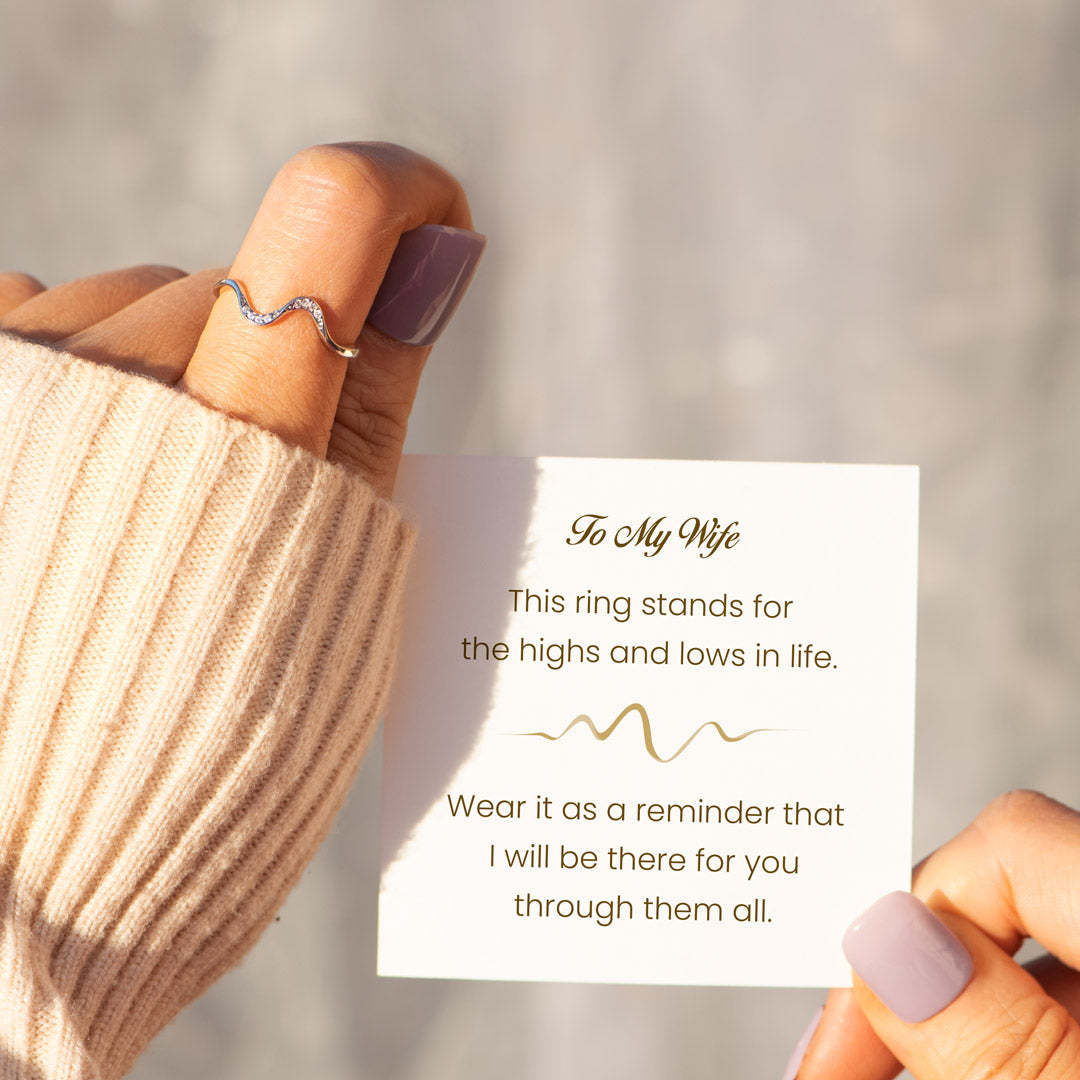 To My Wife
This ring stands for
the highs and lows in life.
Wear it as a reminder that
I will be there for you
through them all.